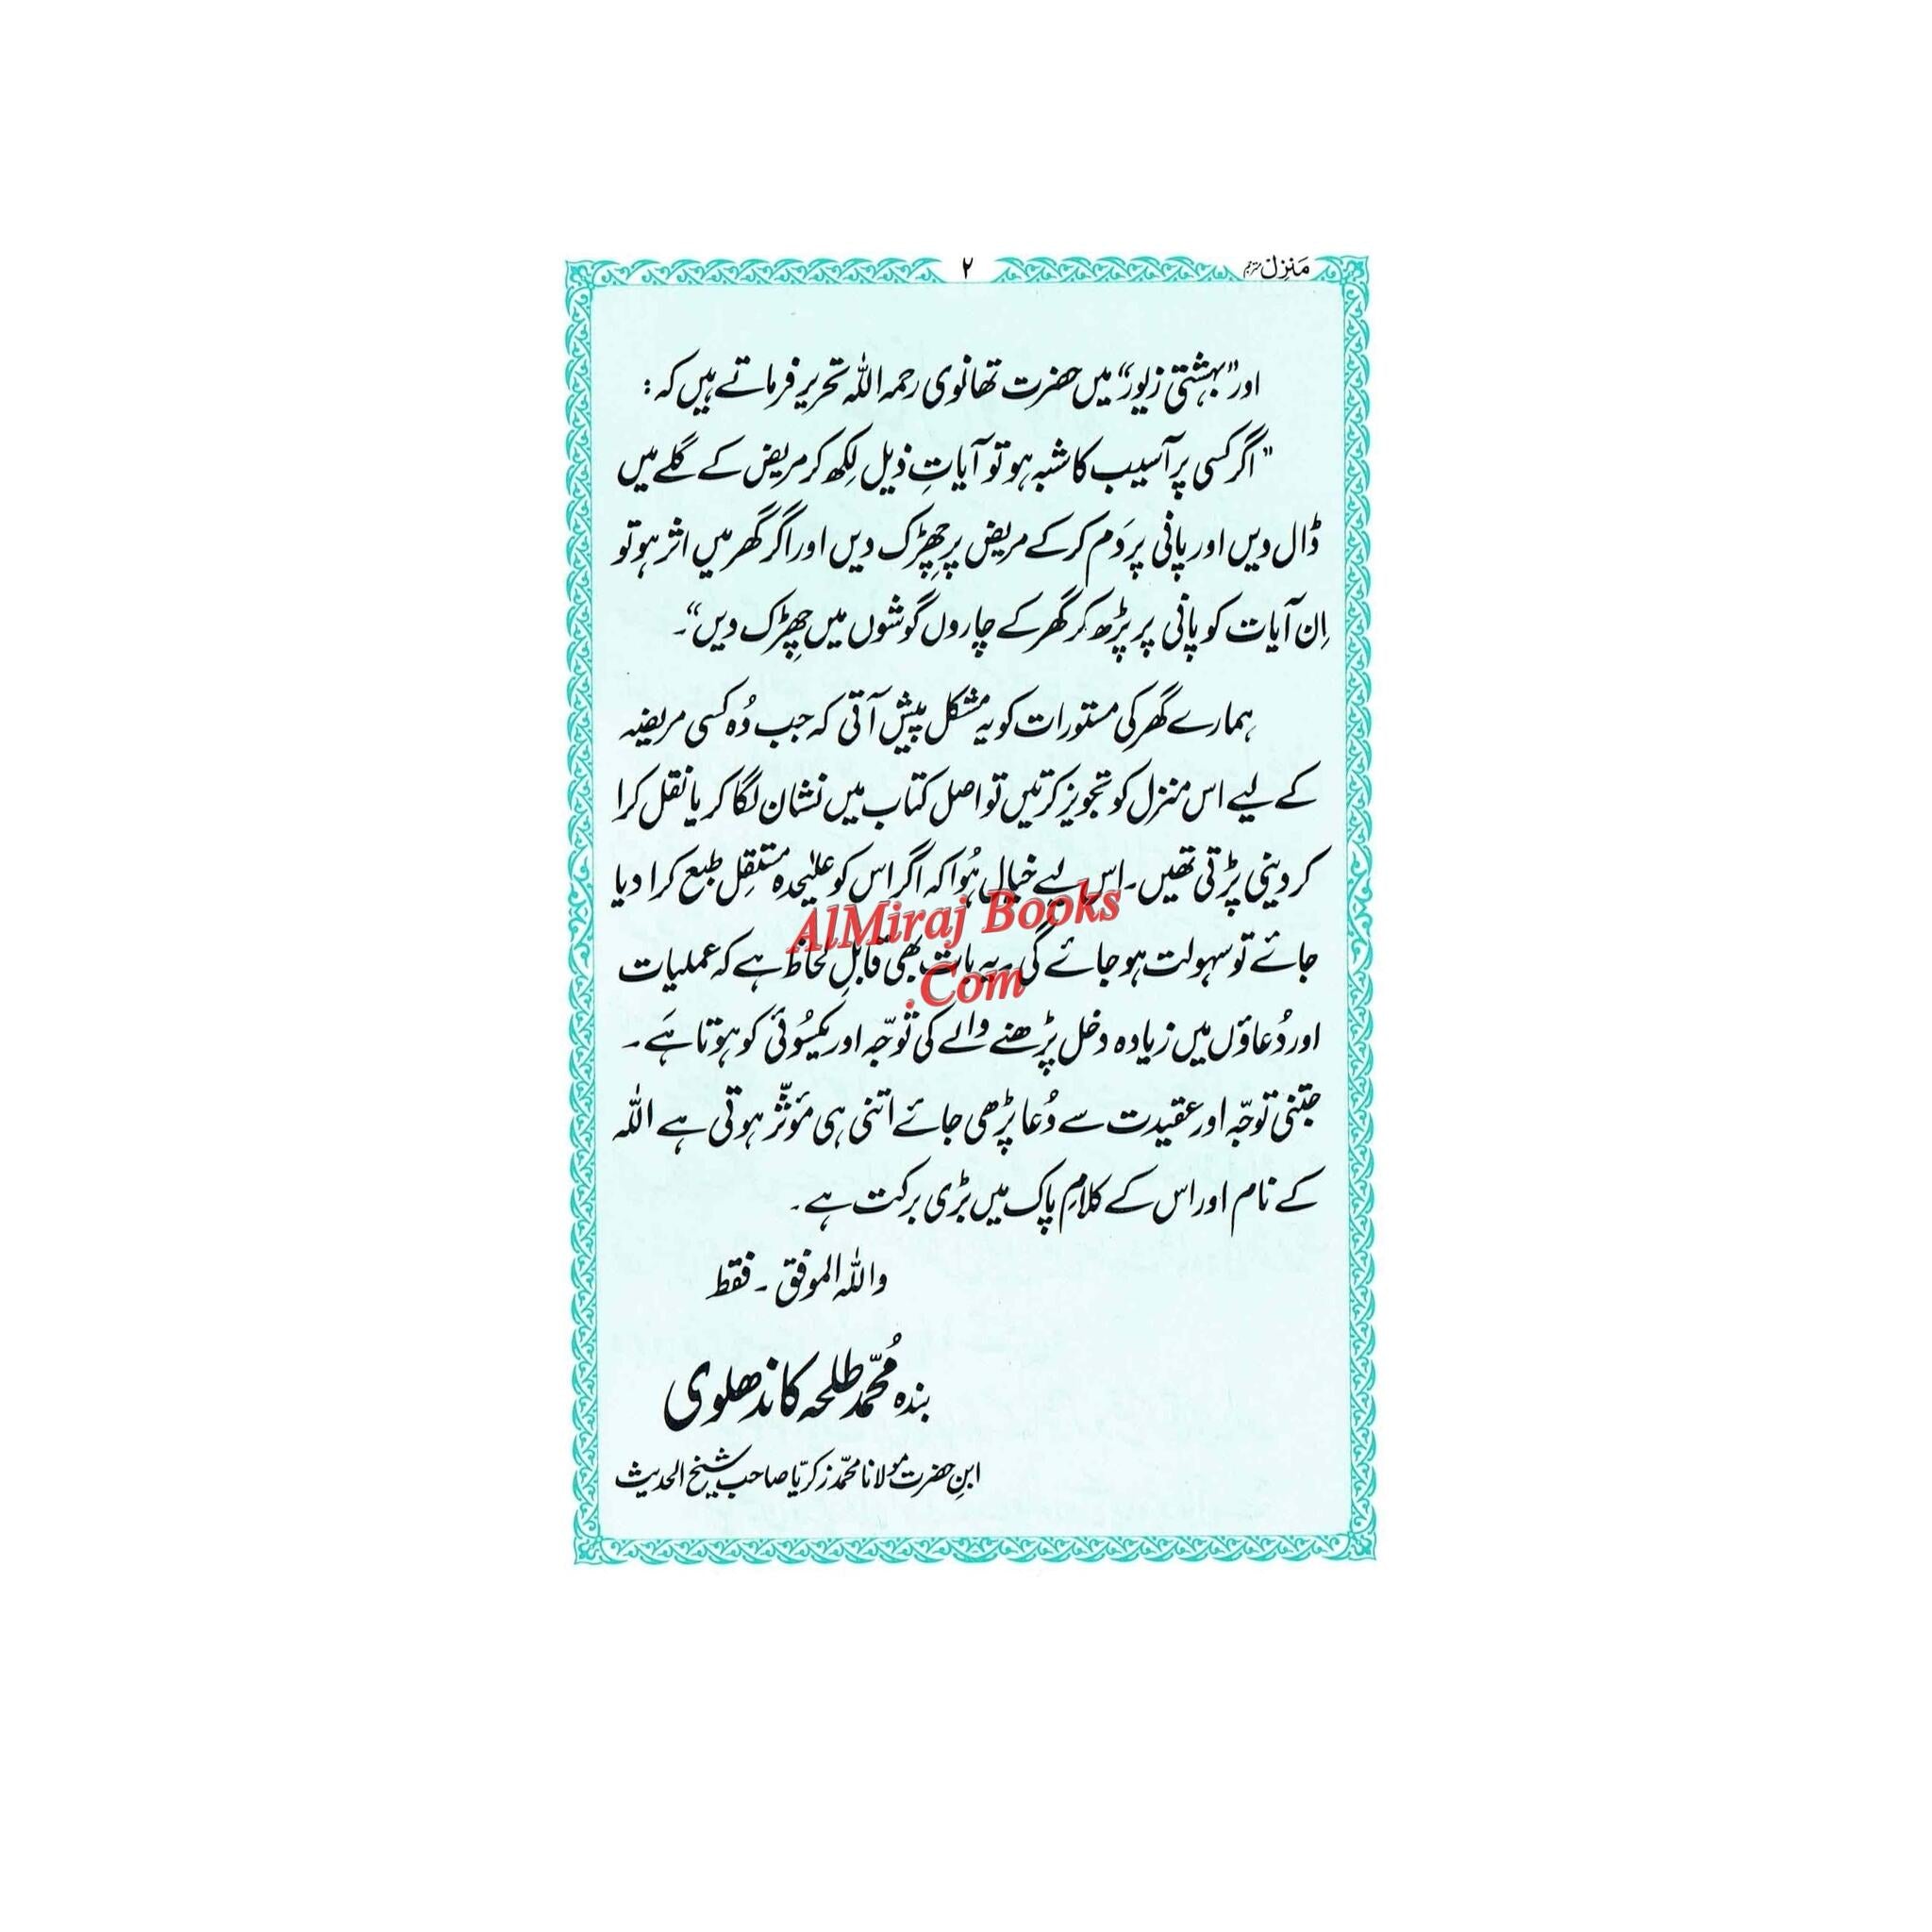 مَنزِل مترجم
۲
اور ”بہشتی زیور“ میں حضرت تھانوی رحمہ اللہ تحریر فرماتے ہیں کہ :
”اگر کسی پر آسیب کا شبہ ہو تو آیاتِ ذیل لِکھ کر مریض کے گلے میں
ڈال دیں اور پانی پر دَم کر کے مریض پر چھِڑک دیں اور اگر گھر میں اثر ہو تو
اِن آیات کو پانی پر پڑھ کر گھر کے چاروں گوشوں میں چھِڑک دیں“۔
ہمارے گھر کی مستورات کو یہ مشکل پیش آتی کہ جب وُہ کسی مریضہ
کے لیے اس منزل کو تجویز کرتیں تو اصل کتاب میں نشان لگا کر یا نقل کرا
کر دینی پڑتی تھیں۔ اس لیے خیال ہُوا کہ اگر اس کو علیٰحدہ مستقِل طبع کرا دیا
جائے تو سہولت ہو جائے گی۔ یہ بات بھی قابلِ لحاظ ہے کہ عملیات
اور دُعاؤں میں زیادہ دخل پڑھنے والے کی توجّہ اور یکسُوئی کو ہوتا ہَے۔
جتنی توجّہ اور عقیدت سے دُعا پڑھی جائے اتنی ہی مؤثّر ہوتی ہے اللہ
کے نام اور اس کے کلامِ پاک میں بڑی برکت ہے۔
واللہ الموفق ۔ فقط
بندہ مُحمّد طلحہ کاندھلوی
ابنِ حضرت مولانا محمّد زکریّا صاحب شیخ الحدیث
AlMiraj Books
.Com